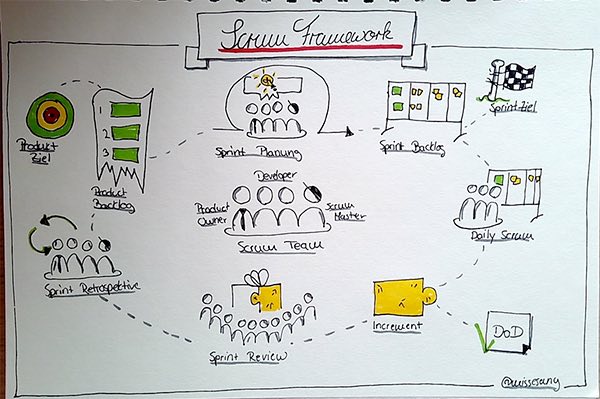 Scrum Framework
Product
Ziel
1
2
3
Product
Backlog
Sprint Planung
Sprint Backlog
Sprint-Ziel
Developer
Product
Owner
Scrum
Master
Scrum Team
Daily Scrum
Sprint Retrospektive
Sprint Review
Increment
DoD